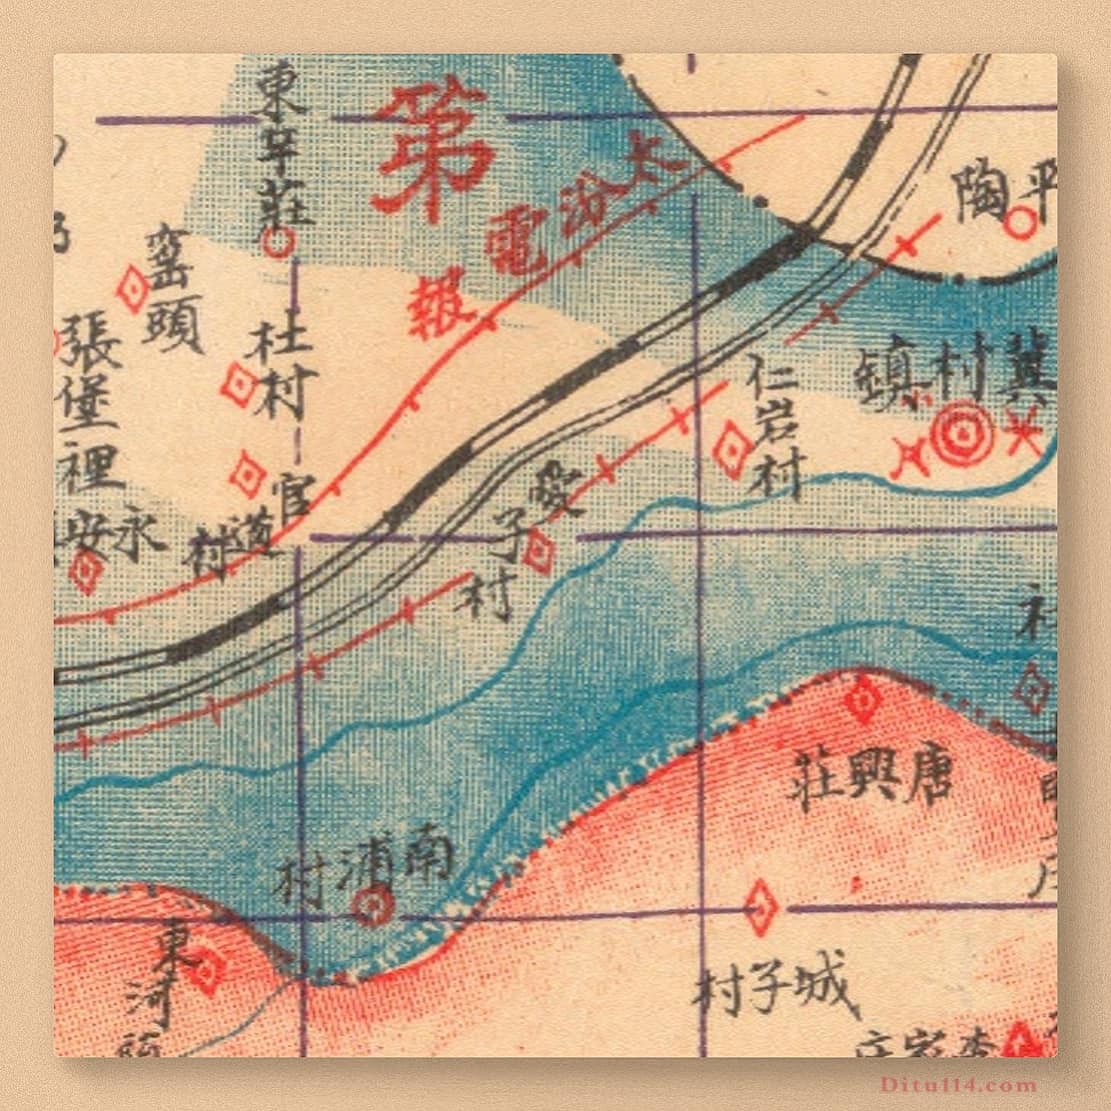 東辛莊
第
太汾電報
平陶
窰頭
杜村
張堡裡
永安
官道村
仁岩村
冀村鎮
愛子村
唐興莊
南浦村
東河
城子村
Ditu114.com